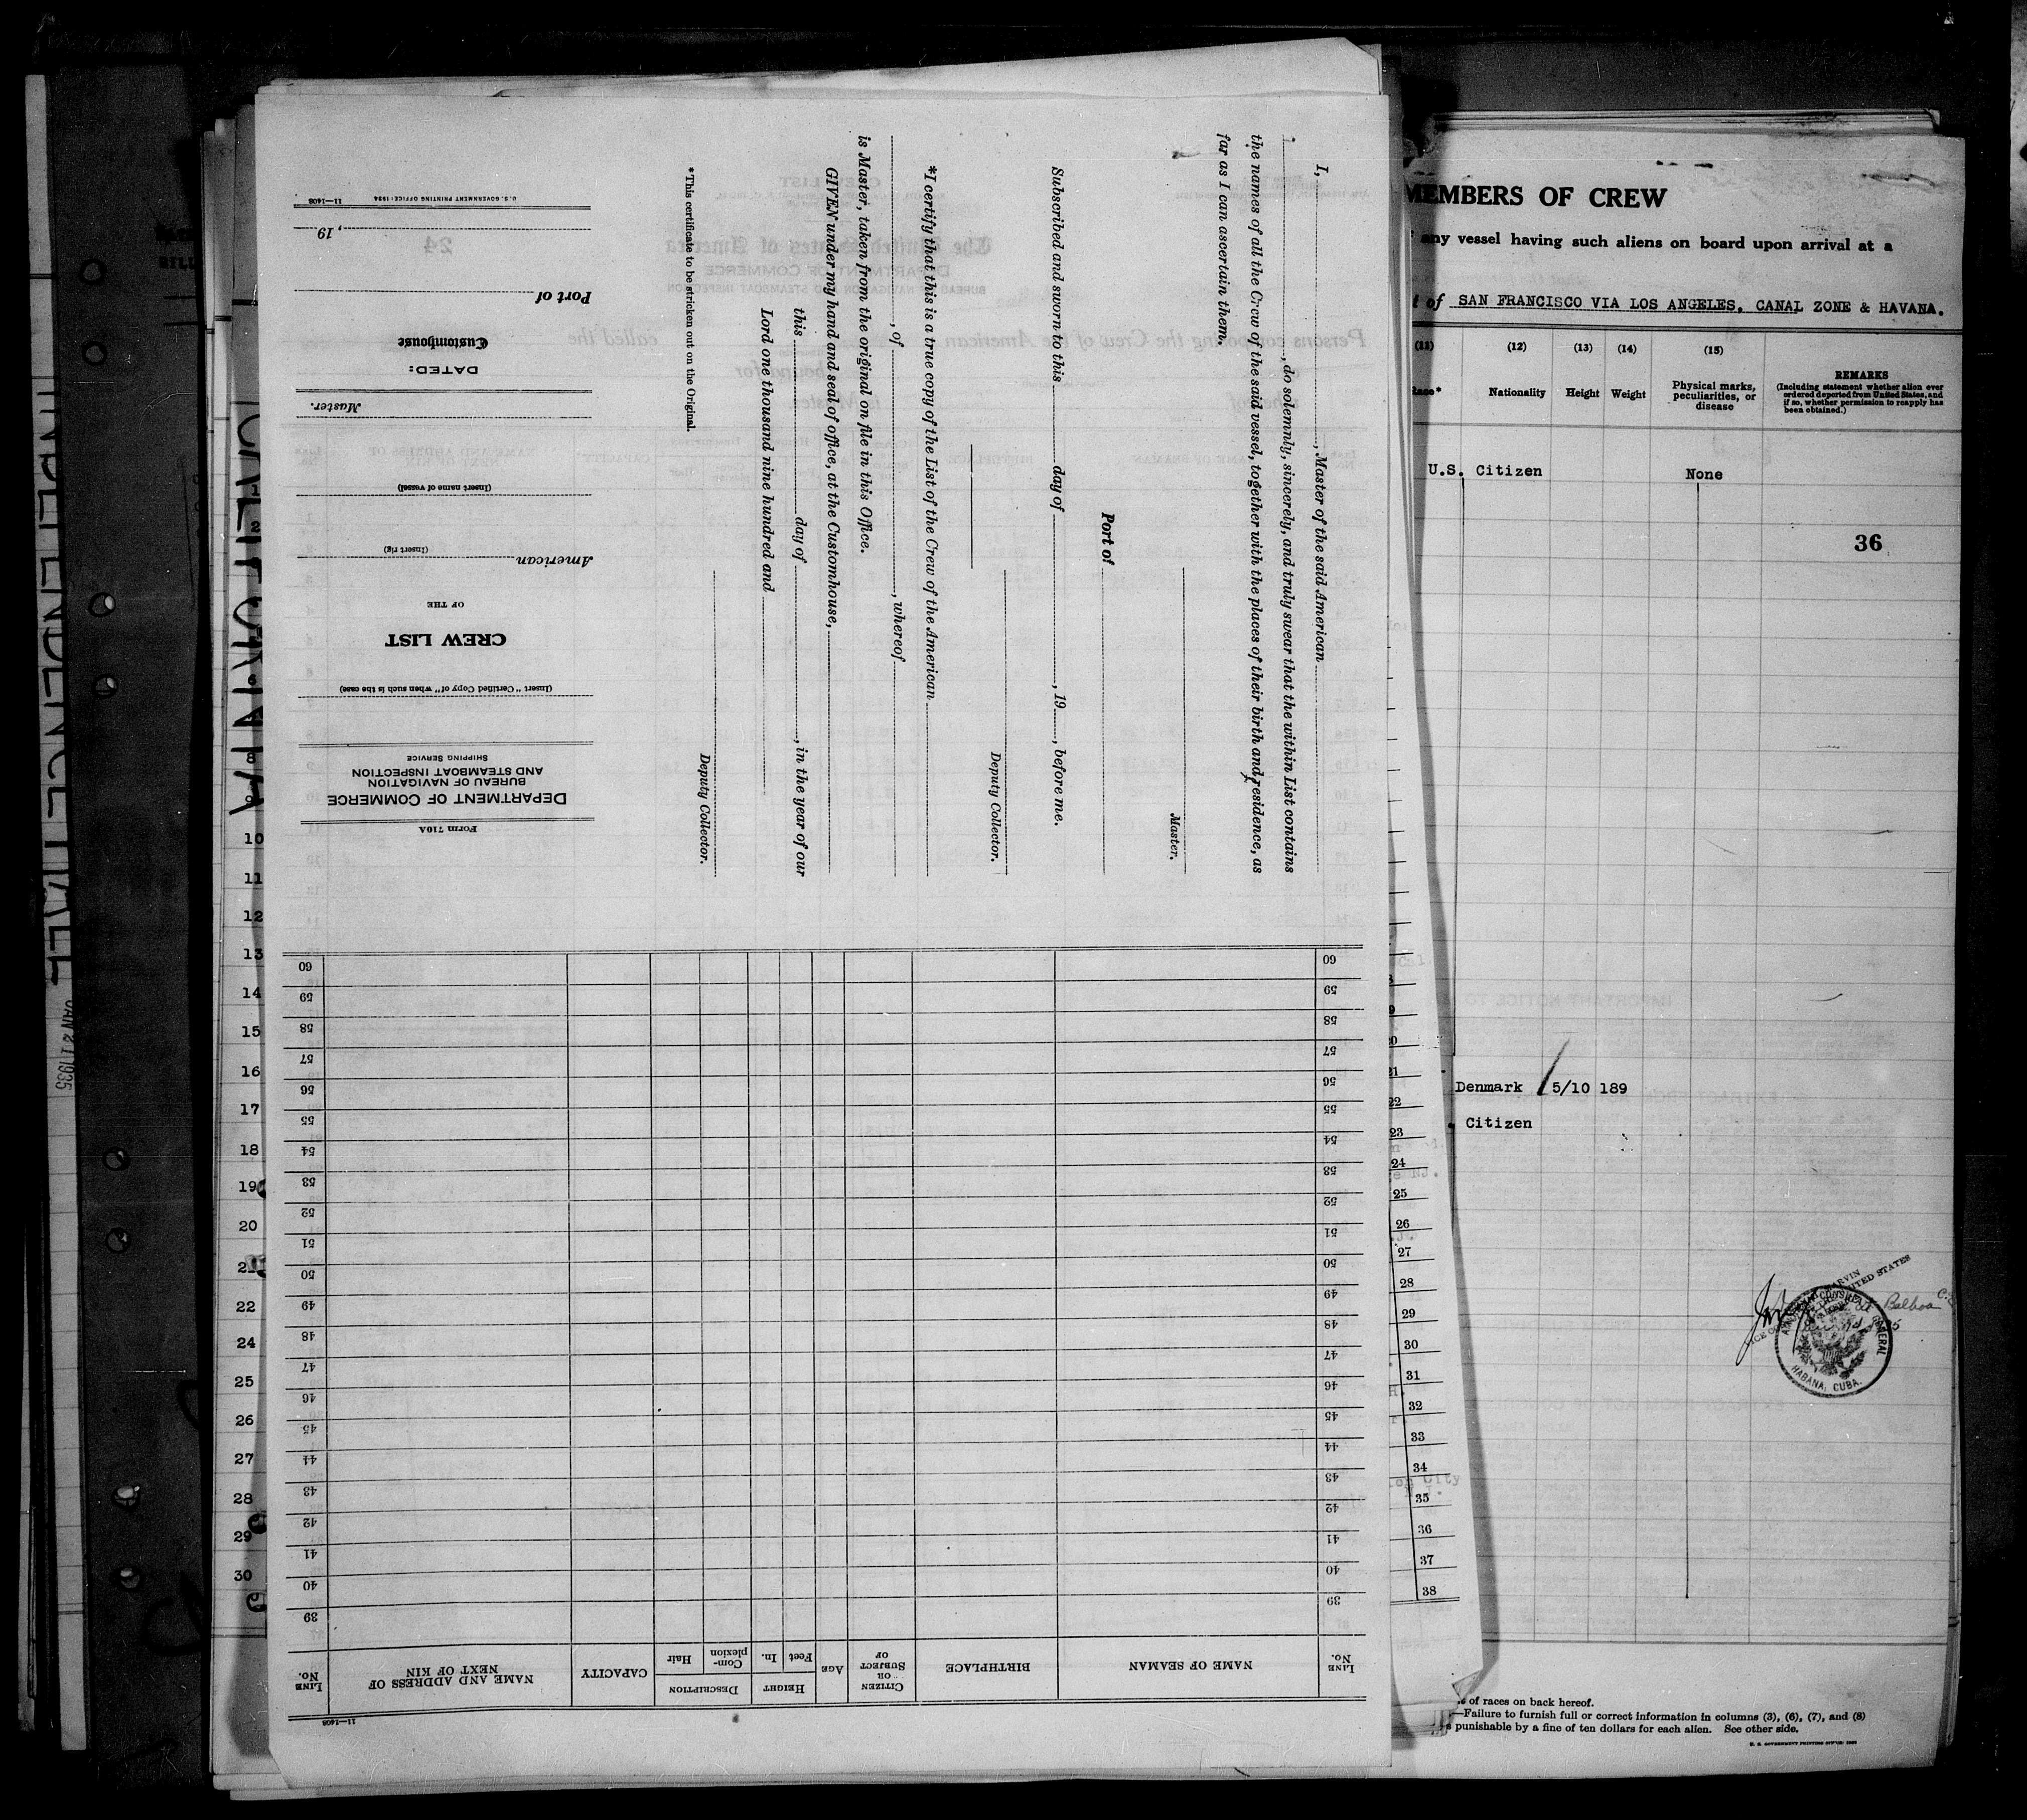 INDEPENDENCE HALL
JAN 21 1935
CALIFORNIA
Form 710A
DEPARTMENT OF COMMERCE
BUREAU OF NAVIGATION
AND STEAMBOAT INSPECTION
SHIPPING SERVICE
(Insert "Certified Copy of" when such is the case)
CREW LIST
OF THE
American
(Insert rig)
(Insert name of vessel)
Master.
DATED:
Customhouse
Port of
, 19
U.S. GOVERNMENT PRINTING OFFICE: 1934 11—1408
I, , Master of the said American
, do solemnly, sincerely, and truly swear that the within List contains
the names of all the Crew of the said vessel, together with the places of their birth and residence, as
far as I can ascertain them.
Master.
Port of
Subscribed and sworn to this day of , 19 , before me.
Deputy Collector.
*I certify that this is a true copy of the List of the Crew of the American
, of , whereof
is Master, taken from the original on file in this Office.
GIVEN under my hand and seal of office, at the Customhouse,
this day of , in the year of our
Lord one thousand nine hundred and
Deputy Collector.
*This certificate to be stricken out on the Original.
11—1408
LINE No.
NAME OF SEAMAN
BIRTHPLACE
CITIZEN OR SUBJECT OF
AGE
HEIGHT
Feet
In.
DESCRIPTION
Complexion
Hair
CAPACITY
NAME AND ADDRESS OF NEXT OF KIN
LINE No.
39
40
41
42
43
44
45
46
47
48
49
50
51
52
53
54
55
56
57
58
59
60
1
2
8
9
10
11
12
13
14
15
16
17
18
19
20
21
22
24
25
26
27
28
29
30
22
23
24
25
26
27
28
29
30
31
32
33
34
35
36
37
38
MEMBERS OF CREW
any vessel having such aliens on board upon arrival at a
of SAN FRANCISCO VIA LOS ANGELES, CANAL ZONE & HAVANA.
(11) (12) (13) (14) (15)
Race* Nationality Height Weight Physical marks, peculiarities, or disease
REMARKS
(Including statement whether alien ever
ordered deported from United States, and
if so, whether permission to reapply has
been obtained.)
U.S. Citizen None
36
Denmark 5/10 189
Citizen
UNITED STATES
Balboa
AMERICAN CONSULATE GENERAL
HABANA, CUBA.
of races on back hereof.
—Failure to furnish full or correct information in columns (3), (6), (7), and (8)
punishable by a fine of ten dollars for each alien. See other side.
U. S. GOVERNMENT PRINTING OFFICE